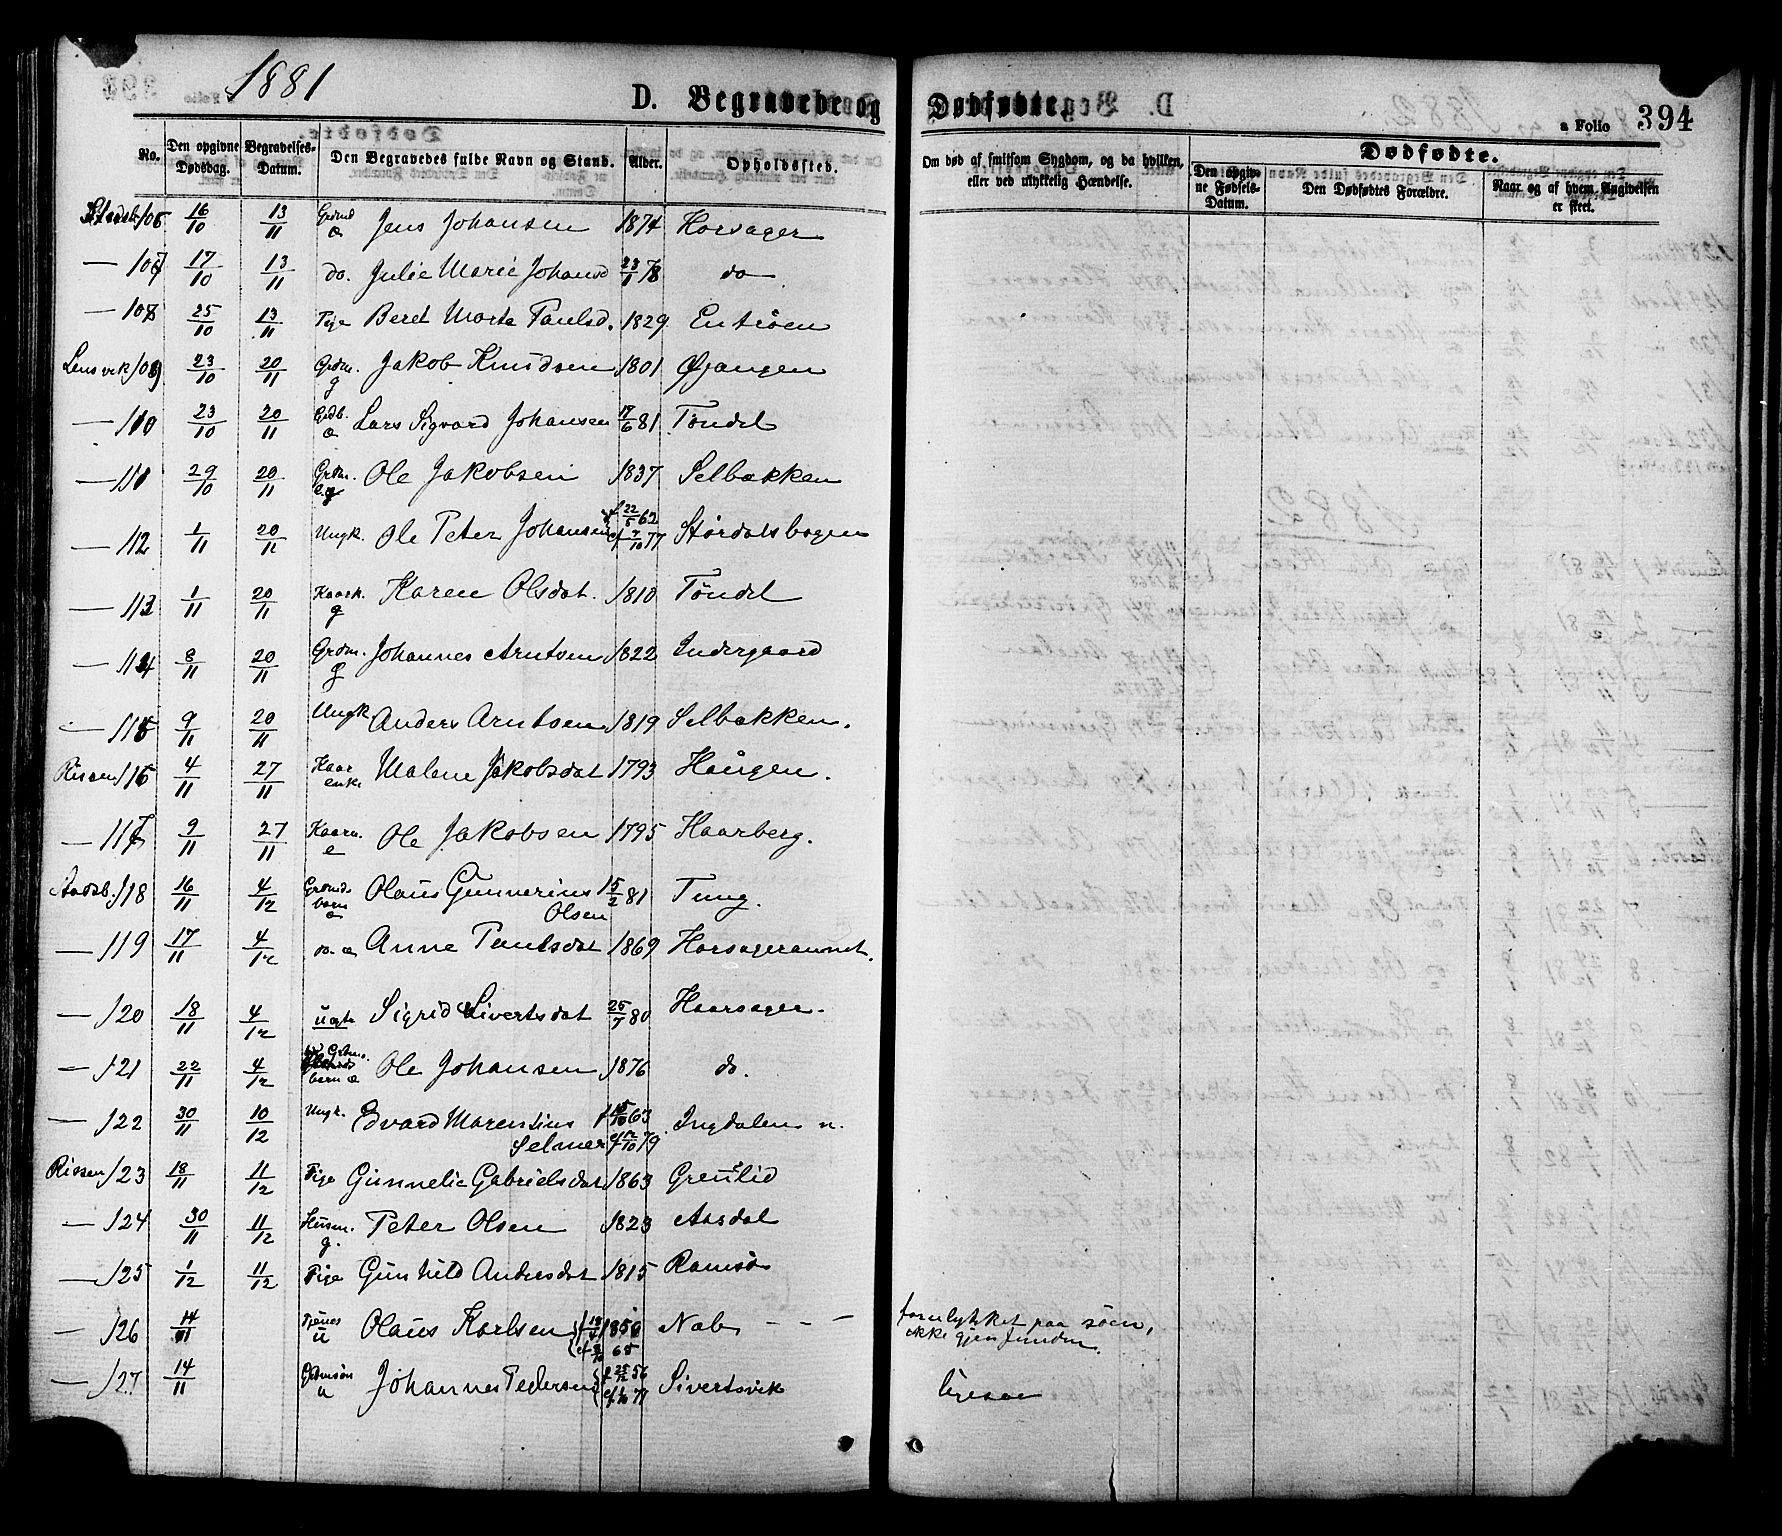 1881
D. Begravede og Dødfødte.
a Folio 394
No. Den opgivne Dødsdag. Begravelses-Datum. Den Begravedes fulde Navn og Stand. Alder. Opholdssted. Om død af smitsom Sygdom, og da hvilken, eller ved ulykkelig Hændelse.
Dødfødte.
Den opgivne Fødsels-Datum. Den Dødfødtes Forældre. Naar og af hvem Angivelsen er skeet.
106 16/10 13/11 Jens Johansen 1874 Horsager
— 107 17/10 13/11 do. Julie Marie Johansd 23/1 78 do
— 108 25/10 13/11 Pige Beret Marta Paulsd. 1829 
Lensvik 109 23/10 20/11 Grdm. g Jakob Knudsen 1801 Øjangen
— 110 23/10 20/11 Grdb. æ Lars Sigvard Johansen 17/6 81 Tøndel
— 111 29/10 20/11 Grdm. Ole Jakobsen 1837 Selbækken
— 112 1/11 20/11 Ungk. Ole Peter Johansen f 22/5 62 77 Størdalsbogen
— 113 1/11 20/11 g Karen Olsdat. 1810 Tøndel
— 114 8/11 20/11 Grdm. g Johannes Arntsen 1822 Indergaard
— 115 9/11 20/11 Ungk. Anders Arntsen 1819 Selbækken.
Rissen 116 4/11 27/11 Kaar enke Malene Jakobsdat 1793 Haugen.
— 117 9/11 27/11 Kaarm. e Ole Jakobsen 1795 Haarberg.
Stadsb. 118 16/11 4/12 Grdmds barn æ Olaus Gunnerius Olsen 15/2 81 Tung.
— 119 17/11 4/12 do. æ Anne Paulsdat 1869 Horsageraunet.
— 120 18/11 4/12 uægte Sigrid Sivertsdat 25/7 80 Haarsager.
— 121 22/11 4/12 barn æ Ole Johansen 1876 do.
— 122 30/11 10/12 Ungk. Edvard Marentius Selmer 63 79 Ingdalen n.
Rissen 123 18/11 11/12 Pige Gunnelie Gabrielsdat 1863 Greulid
— 124 30/11 11/12 Husm. g. Peter Olsen 1823 Aasdal
— 125 1/12 11/12 Pige Gunhild Andersdat 1815 Ramsø
— 126 14/11 u Olaus Karlsen 1850 65 Næb — — — forulykket paa søen, ikke gjenfunden.
— 127 14/11 Grdmsøn u Johannes Pedersen f 25/12 56 71 Sivertsvik ligesaa